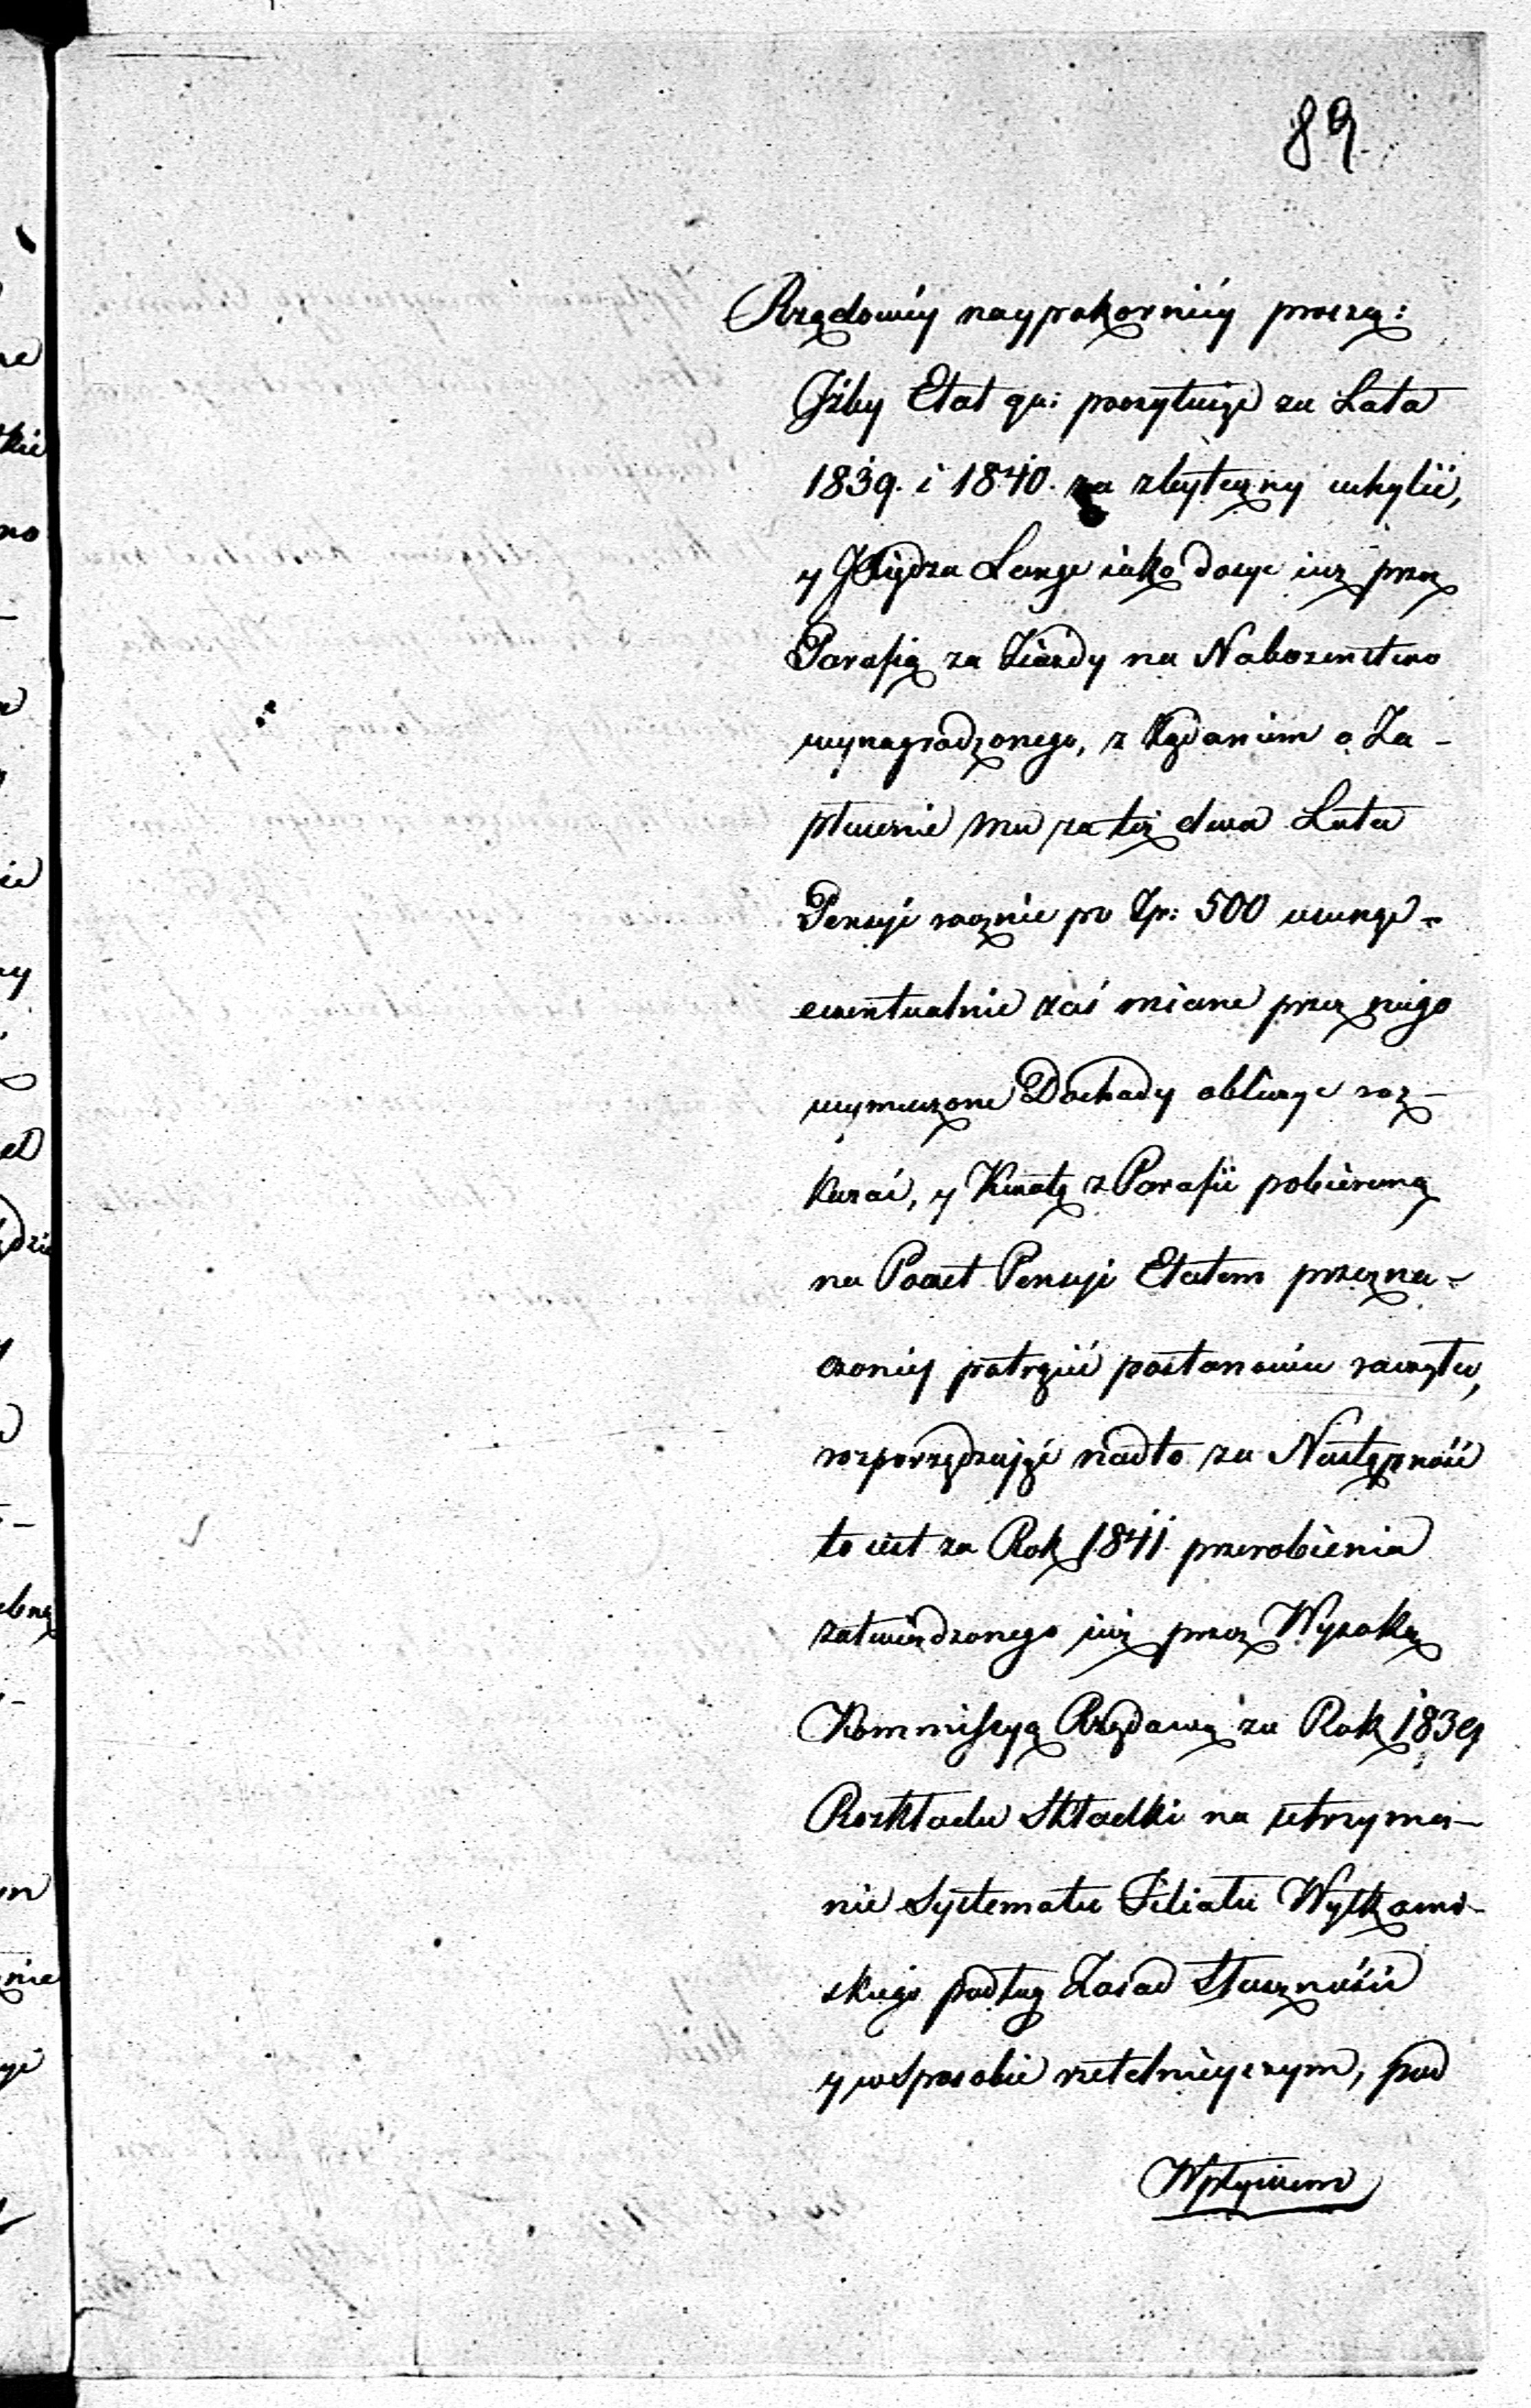 89
Rządowéy naypokorniéy proszą:
Jżby Etat qu: pozytuigo za Lata
1839. i 1840. za zbyteczny uchylić,
y JXiędza Lange iako dosyc iuż przez
Parafią za Ziazdy na Nabozenstwo
wynagrodzonego, z Żądaniem o Za-
płacenie mu za też dwa Lata
Pensyi rocznie po Zp: 500 usunąć-
ewentualnie zaś miane przez niego
wymierzone Dochody obliczyc roz-
kazać, y Kwotę z Parafii pobieraną
na Poczet Pensyi Etatem przezna-
czoniéy potrącić postanowiu raczyła,
rozporządzaiąc nadto za Następność
to iest za Rok 1841. przerobienia
zatwierdzonego iuż przez Wysoką
Kommissyą Rządową za Rok 1839
Rozkładu Składki na utrzyma-
nie Systematu Filiału Wyłkowi-
skiego podług Zasad Słuszności
y w Sposobie rzetelnieyszym, pod
Wpływem